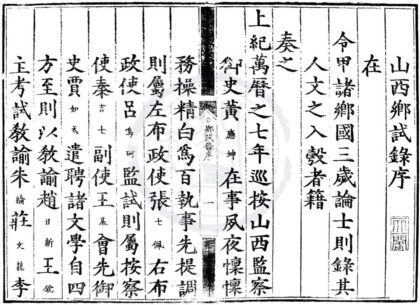 山西鄉試錄序
在
令甲諸鄉國三歲論士則錄其
人文之入彀者籍
奏之
上紀萬曆之七年巡按山西監察
御史黃應坤在事夙夜懍懍
務操精白爲百執事先提調
則屬左布政使張士佩右布
政使呂 監試則屬按察
使秦吉士副使王基會先御
史賈如式遣聘諸文學自四
方至則以教諭趙日新王
主考試教諭朱 莊文龍李